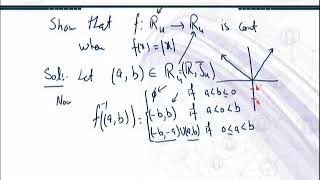 Show that f: Rᵤ → Rᵤ is cont
when f(x) = |x|
Sol:- Let (a, b) ∈ Rᵤ = (R, Jᵤ)
Now
f⁻¹((a, b)) = { φ if a < b ≤ 0
(-b, b) if a < 0 < b
(-b, -a) ∪ (a, b) if 0 ≤ a < b
b
a